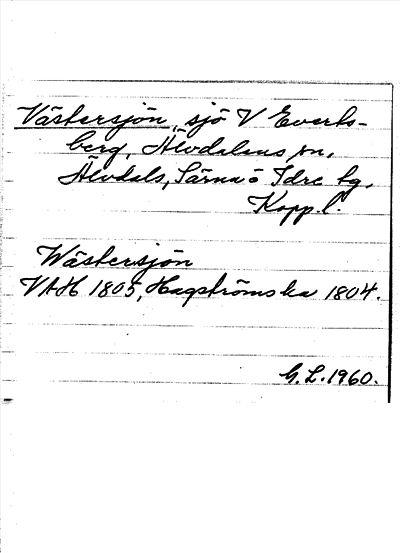 Västersjön, sjö V Everts-
berg, Älvdalens sn,
Älvdals, Särna o Idre tg,
Kopp.l.
Wästersjön
VAH 1805, Hagströms ka 1804.
G.L.1960.